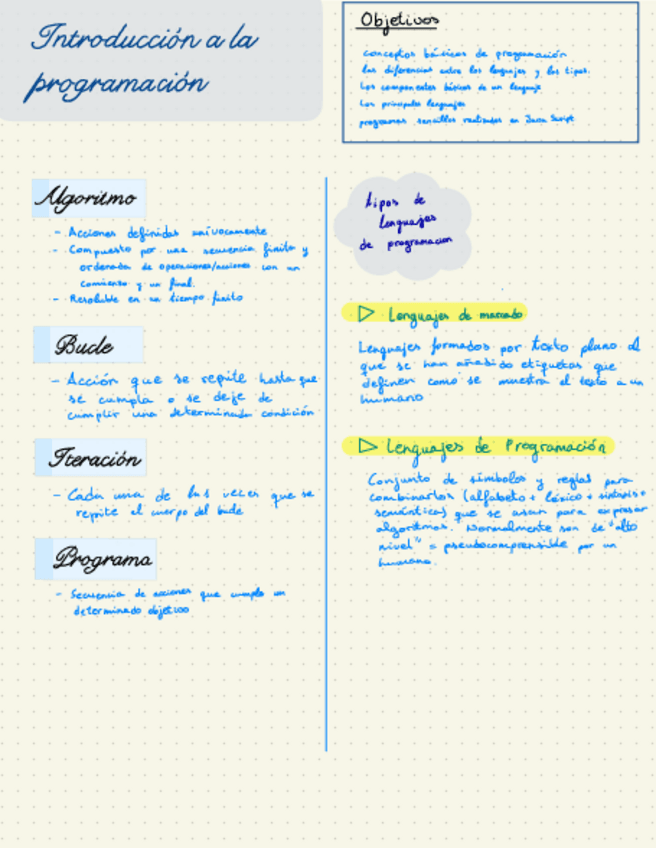 Introducción a la
programación
Objetivos
conceptos básicos de programación
las diferencias entre los lenguajes y los tipos.
Los componentes básicos de un lenguaje
Los principales lenguajes
programas sencillos realizados en Java Script
Algoritmo
- Acciones definidas unívocamente
- Compuesto por una secuencia finita y
ordenada de operaciones/acciones con un
comienzo y un final.
- Resoluble en un tiempo finito
Bucle
- Acción que se repite hasta que
se cumpla o se deje de
cumplir una determinada condición
Iteración
- Cada una de las veces que se
repite el cuerpo del bucle
Programa
- Secuencia de acciones que cumple un
determinado objetivo
tipos de
lenguajes
de programacion
Lenguajes de marcado
Lenguajes formados por texto plano al
que se han añadido etiquetas que
definen como se muestra el texto a un
humano
Lenguajes de Programación
Conjunto de símbolos y reglas para
combinarlos (alfabeto + léxico + sintaxis +
semántica) que se usan para expresar
algoritmos. Normalmente son de "alto
nivel" = pseudocomprensible por un
humano.